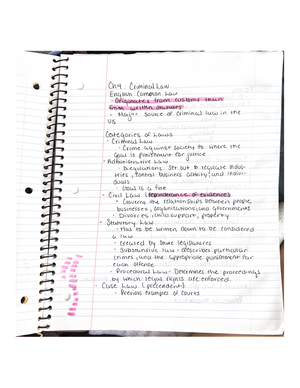 Ch4. Criminal Law
English Common Law
- Originates from customs than
from written statutes
- Major source of criminal law in the
US
Categories of Laws
• Criminal Law
- Crime against society to where the
goal is punishment for justice
• Administrative Law
- Regulations set out to regulate indus-
tries, control business activity, and indivi-
duals
- Goal is a fine
• Civil Law (preponderance of evidence)
- Governs the relationships between people,
businesses, organizations, and governments
- Divorces, child support, property
• Statutory Law
- Has to be written down to be considered
a law
- Created by state legislatures
- Substantive law - describes particular
crimes, and the appropriate punishment for
each offense
- Procedural Law - Determines the proceedings
by which legal rights are enforced.
• Case Law (precedent)
- Previous examples of courts